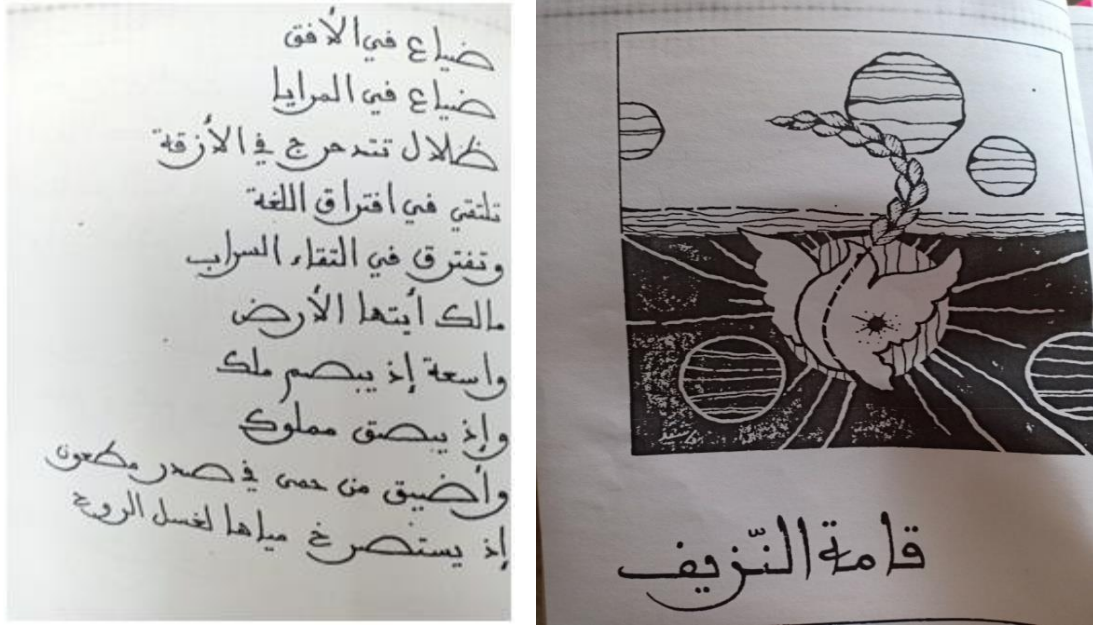 ضياع في الأفق
ضياع في المرايا
ظلال تتدحرج في الأزقة
تلتقي في افتراق اللغة
وتفترق في التقاء السراب
مالك أيتها الأرض
واسعة إذ يبصم ملك
وإذ يبصق مملوك
وأضيق من حمى في صدر مطعون
إذ يستصرخ مياها لغسل الروح
قامة النّزيف